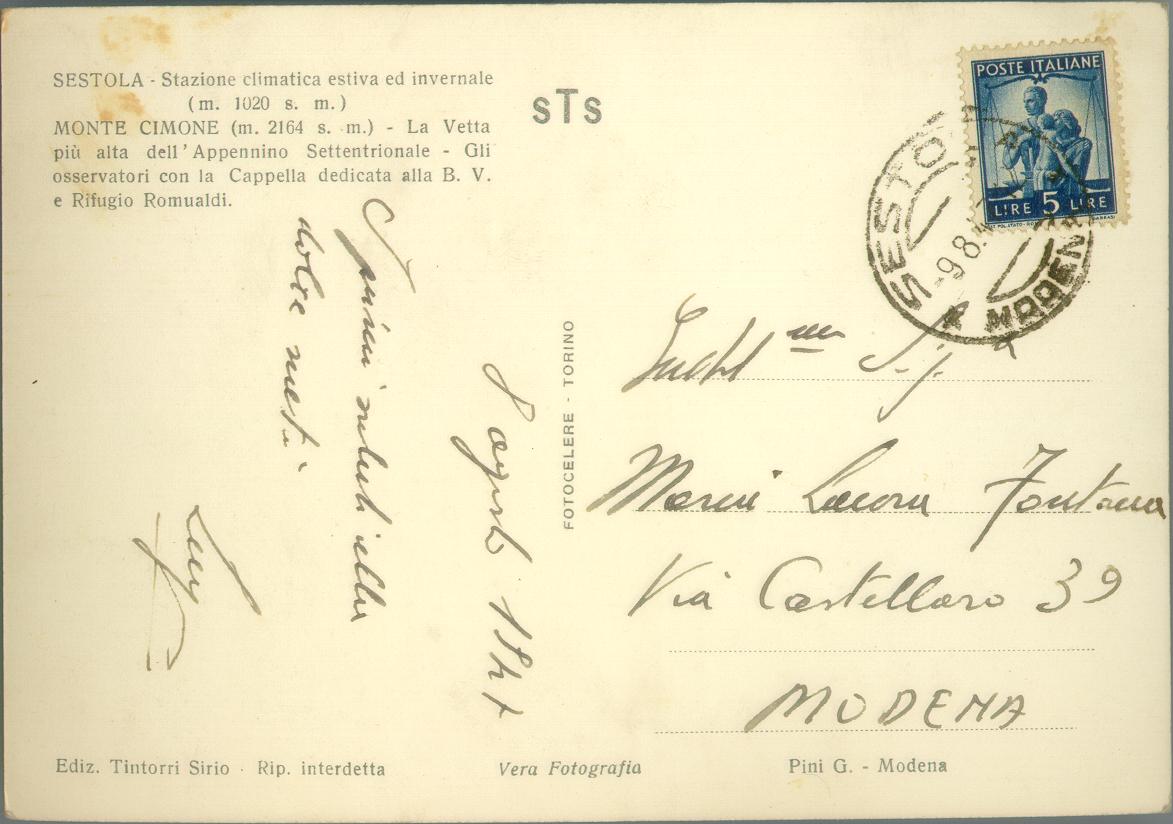 SESTOLA - Stazione climatica estiva ed invernale
(m. 1020 s. m.)
MONTE CIMONE (m. 2164 s. m.) - La Vetta
più alta dell'Appennino Settentrionale - Gli
osservatori con la Cappella dedicata alla B. V.
e Rifugio Romualdi.
sTs
POSTE ITALIANE
LIRE 5 LIRE
SESTOLA
MODENA
9.8.4
I primi saluti alla
dolce metà
agosto 1947
FOTOCELERE - TORINO
Sig.
Fontana
Via Castellaro 39
MODENA
Ediz. Tintorri Sirio - Rip. interdetta
Vera Fotografia
Pini G. - Modena